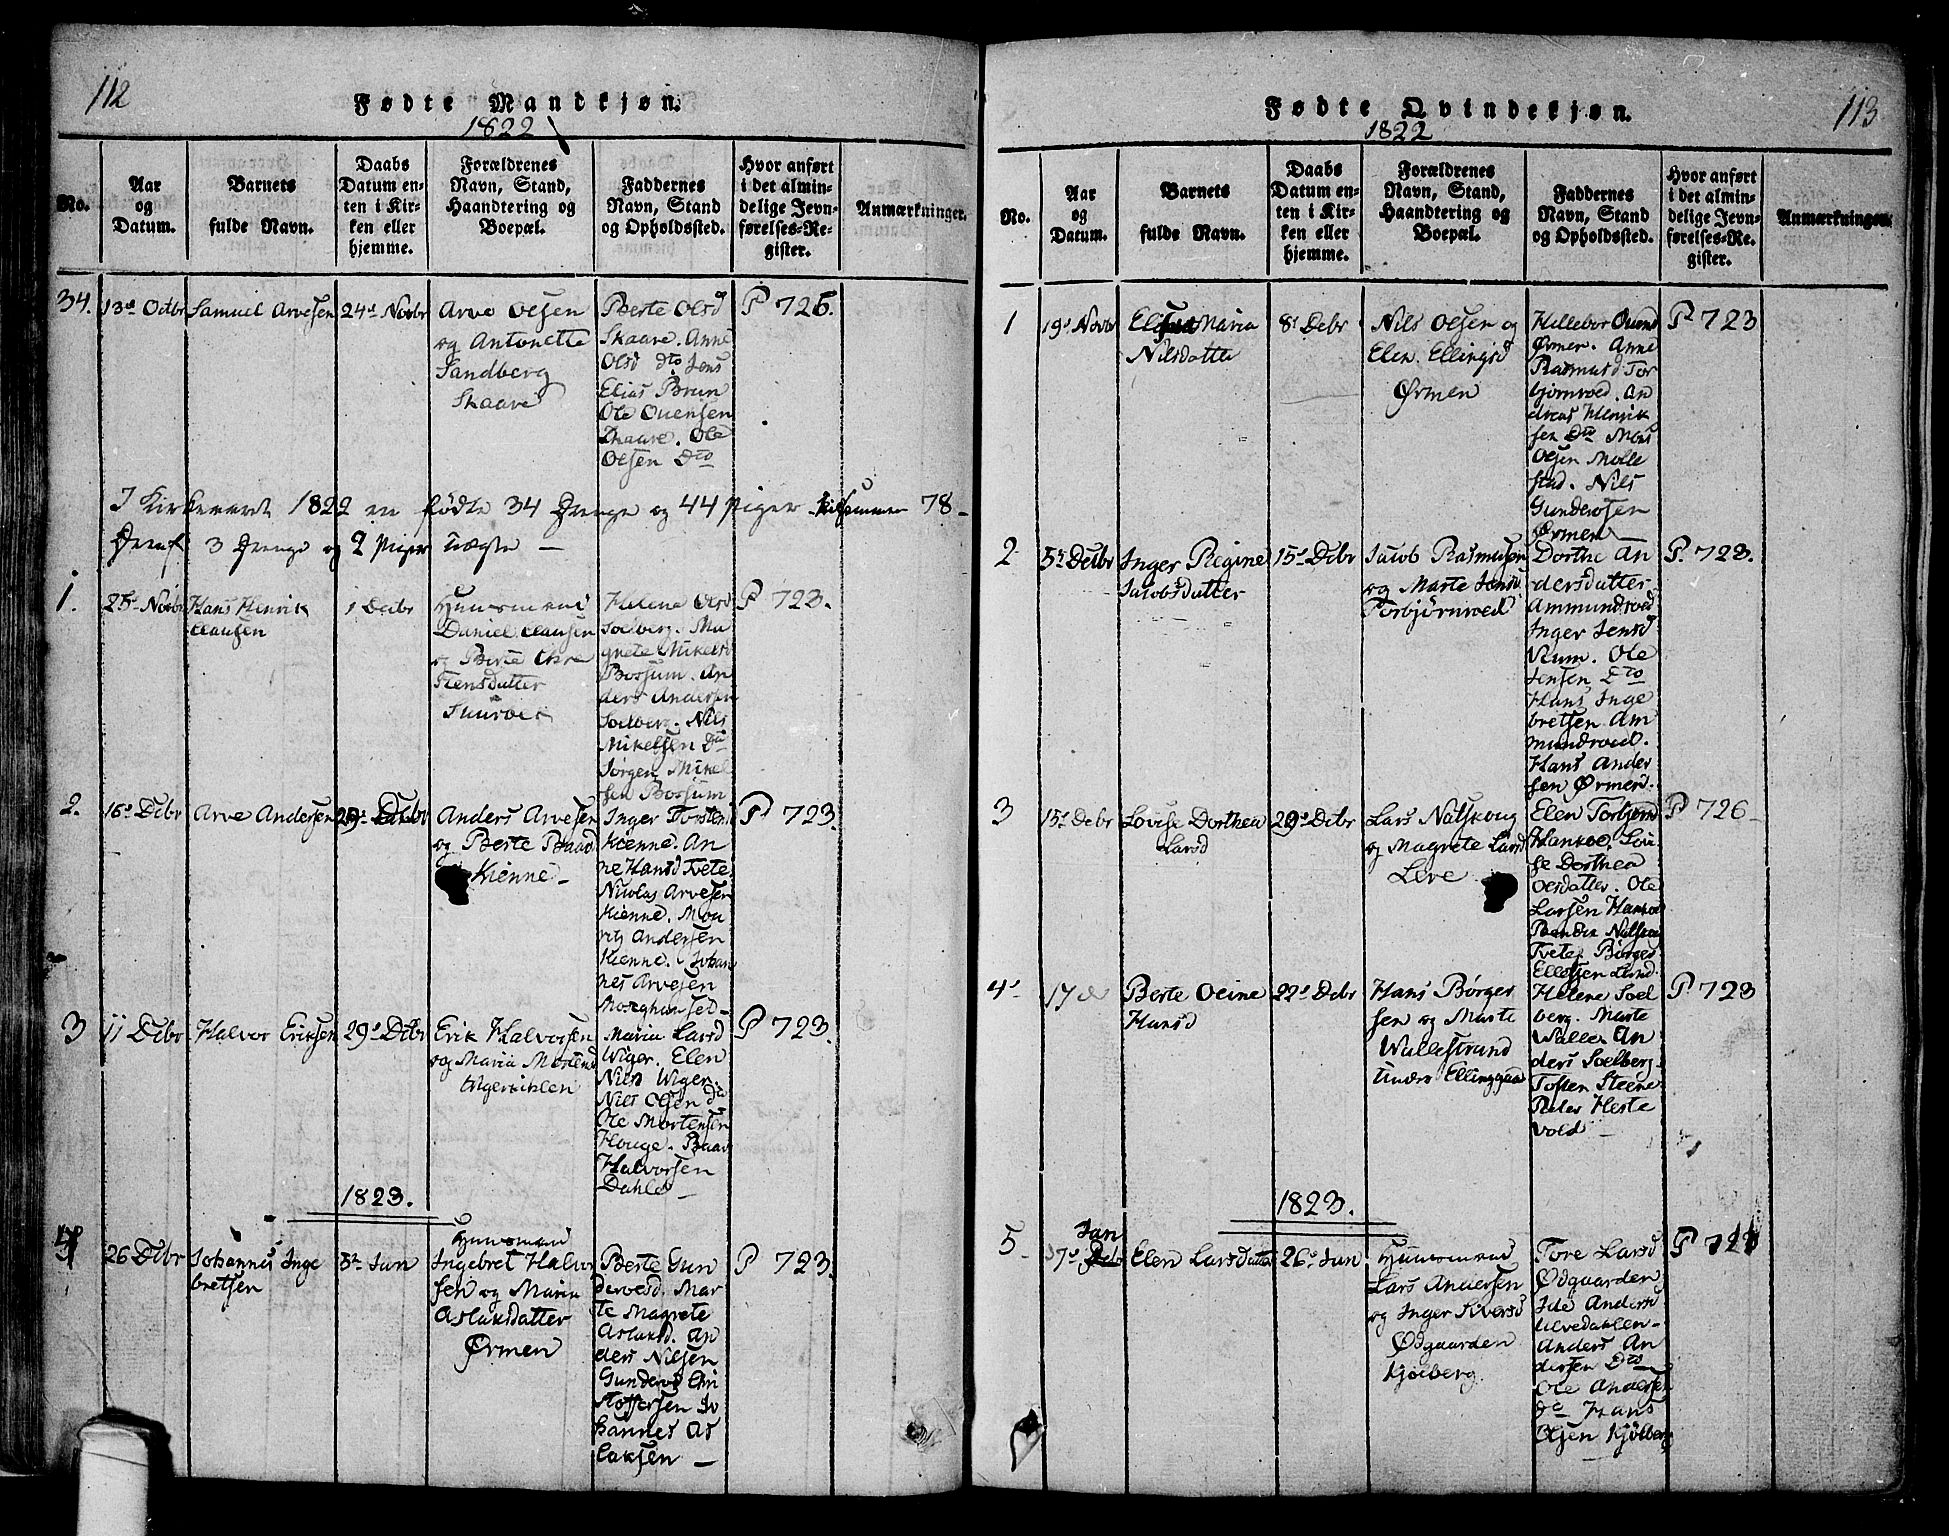 112
Fødte Mandkjøn.
1822
No.
Aar
og
Datum.
Barnets
fulde Navn.
Daabs
Datum en-
ten i Kir-
ken eller
hjemme.
Forældrenes
Navn, Stand,
Haandtering og
Boepæl.
Faddernes
Navn, Stand
og Opholdssted.
Hvor anført
i det almin-
delige Jevn-
førelses-Re-
gister.
Anmærkninger.
34.
13de Octbr
Samuel Arvesen
24de Novbr
Arve Olsen
og Antonette
Sandberg
Skaare
Berte Olsd
Skaare. Anne
Olsd dto Jens
Elias Brun
Ole Ouensen
Skaare. Ole
Olsen Dto
P 726.
I Kirkeaaret 1822 er fødte 34 Drenge og 44 Piger tilsammen 78 -
Deraf 3 Drenge og 2 Piger uægte -
1.
25 Novbr
Hans Henrik
Clausen
1 Decbr
Huusmand
Daniel Clausen
og Berte
Stensdatter
Helene Olsd
Soelberg. Ma
grete Mikelsd
Bossum. An
ders Andersen
Soelberg. Nils
Mikelsen Dto
Jørgen Mikel
sen Bossum
P 723.
2.
16de Decbr
Arve Andersen
29de Decbr
Anders Arvesen
og Berte Baad
Kienne -
Inger Torstens
Kienne. An
ne Hansd Tvete.
Nicolas Arvesen
Kienne. Mou
ritz Andersen
Kienne. Johan
nes Arvesen
P 723.
3
11 Decbr
Halvor Eriksen
29de Decbr
Erik Halvorsen
og Maria Mortensd
Maria Larsd
Wiger. Elen
Nilsd Wiger.
Nils Olsen Dto
Ole Mortensen
Houge. Baar
Halvorsen
Dahle -
P 723.
1823.
4
26 Decbr
Johannes Inge
bretsen
5te Jan
Huusmand
Ingebret Halvor
sen og Maria
Aslaksdatter
Ørmen
Berte Gun
deroed. Mar
te Magrete
Aslaksd. An
ders Nilsen
Gunderød Chri
stoffersen Jo
hannes As
laksen -
P 723.
113
Fødte Qvindekjøn.
1822
No.
Aar
og
Datum.
Barnets
fulde Navn.
Daabs
Datum en-
ten i Kir-
ken eller
hjemme.
Forældrenes
Navn, Stand,
Haandtering og
Boepæl.
Faddernes
Navn, Stand
og Opholdssted.
Hvor anført
i det almin-
delige Jevn-
førelses-Re-
gister.
Anmærkninger.
1
19de Novbr
Maria
Nilsdatter
8de Decbr
Nils Olsen og
Elen Ellingsd
Ørmen
Hilleborg
Ørmen. Anne
Rasmusd Tor
bjørnroed. An
dreas Henrik
sen Dto Mons
Olsen Molle
stad. Nils
Gundersen
Ørmen
P 723
2
5te Decbr
Inger Regine
Jacobsdatter
15de Decbr
Jacob Rasmusen
og Marte Jensd
Torbjørnroed
Dorthe An
dersdatter
Ammundroed
Inger Jensd
Rum. Ole
Jensen Dto
Hans Inge
bretsen Am
mundroed.
Hans Ander
sen Ørmen.
P. 723.
3
15de Decbr
Lovise Dorthea
Larsd
29de Decbr
Lars Natskoug
og Magrete Larsd
Lere
Elen Torbjørnsd
Hankøe. Loui
se Dorthea
Olsdatter. Ole
Larsen Hankøe
Tvete. Børge
Ellefsen Lund.
P 726 -
4
17 d
Berte Oline
Hansd
22de Decbr
Hans Børger
sen og Marte
Wallestrand
under Ellinggaard
Helene Soel
berg. Marte
Walle. An
ders Soelberg.
Tosten Steene
Peder Heste
vold -
P 723
1823.
5
Jan
17de Decbr
Elen Larsdatter
26de Jan
Huusmand
Lars Andersen
og Inger Siversd
Ødgaarden
Kjølberg.
Tore Larsd
Ødgaarden
Ide Andersd
Ulvedahlen -
Anders An
dersen Dto
Ole Andersen
do Hans
Olsen Kjølberg
P